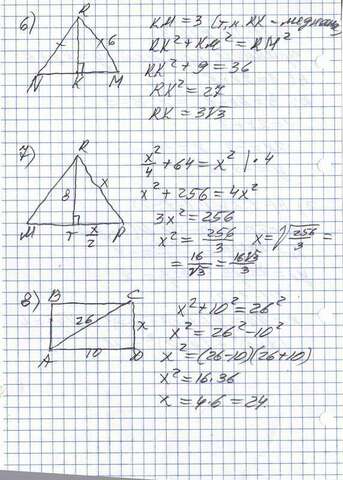 6) R 6 N K M
KM = 3 (т.к. RK - медиана
RK² + KM² = RM²
RK² + 9 = 36
RK² = 27
RK = 3√3
7) R 8 x M T x/2 P
x²/4 + 64 = x² | · 4
x² + 256 = 4x²
3x² = 256
x² = 256/3 x = √256/3 =
= 16/√3 = 16√3/3
8) B C 26 x A 10 D
x² + 10² = 26²
x² = 26² - 10²
x² = (26-10)(26+10)
x² = 16 · 36
x = 4 · 6 = 24.